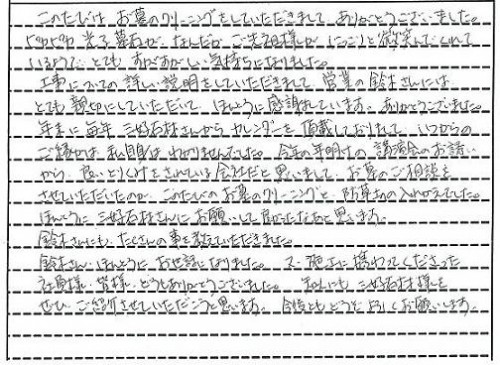 このたびは、お墓のクリーニングをしていただきまして、ありがとうございました。
ピカピカ光る墓石が、なんだか ご先祖様が にっこりと微笑んでくれて
いるようで、とても すがすがしい気持ちになりました。
工事についての詳しい説明をしていただきまして、営業の鈴木さんには
とても親切にしていただいて、ほんとうに感謝しています。ありがとうございました。
年末に毎年 三好石材さんから カレンダーを頂戴しておりまして、いつからの
ご縁かは、私自身は わかりませんでした。今年の年明けの 講演会のお誘い
から、良いとりくみをされている会社だと思いまして、お墓のご相談を
させていただいたのが、このたびのお墓のクリーニングと 防草土の入れかえでした。
ほんとうに 三好石材さんに お願いして 良かったなあと思います。
鈴木さんにも、たくさんの事を教えていただきました。
鈴木さん、ほんとうに お世話になりました。又、施工に携わってくださった
社員様、皆様、どうもありがとうございました。 三好石材様を
ぜひ、ご紹介させていただこうと思います。今後ともどうぞ よろしくお願いします。